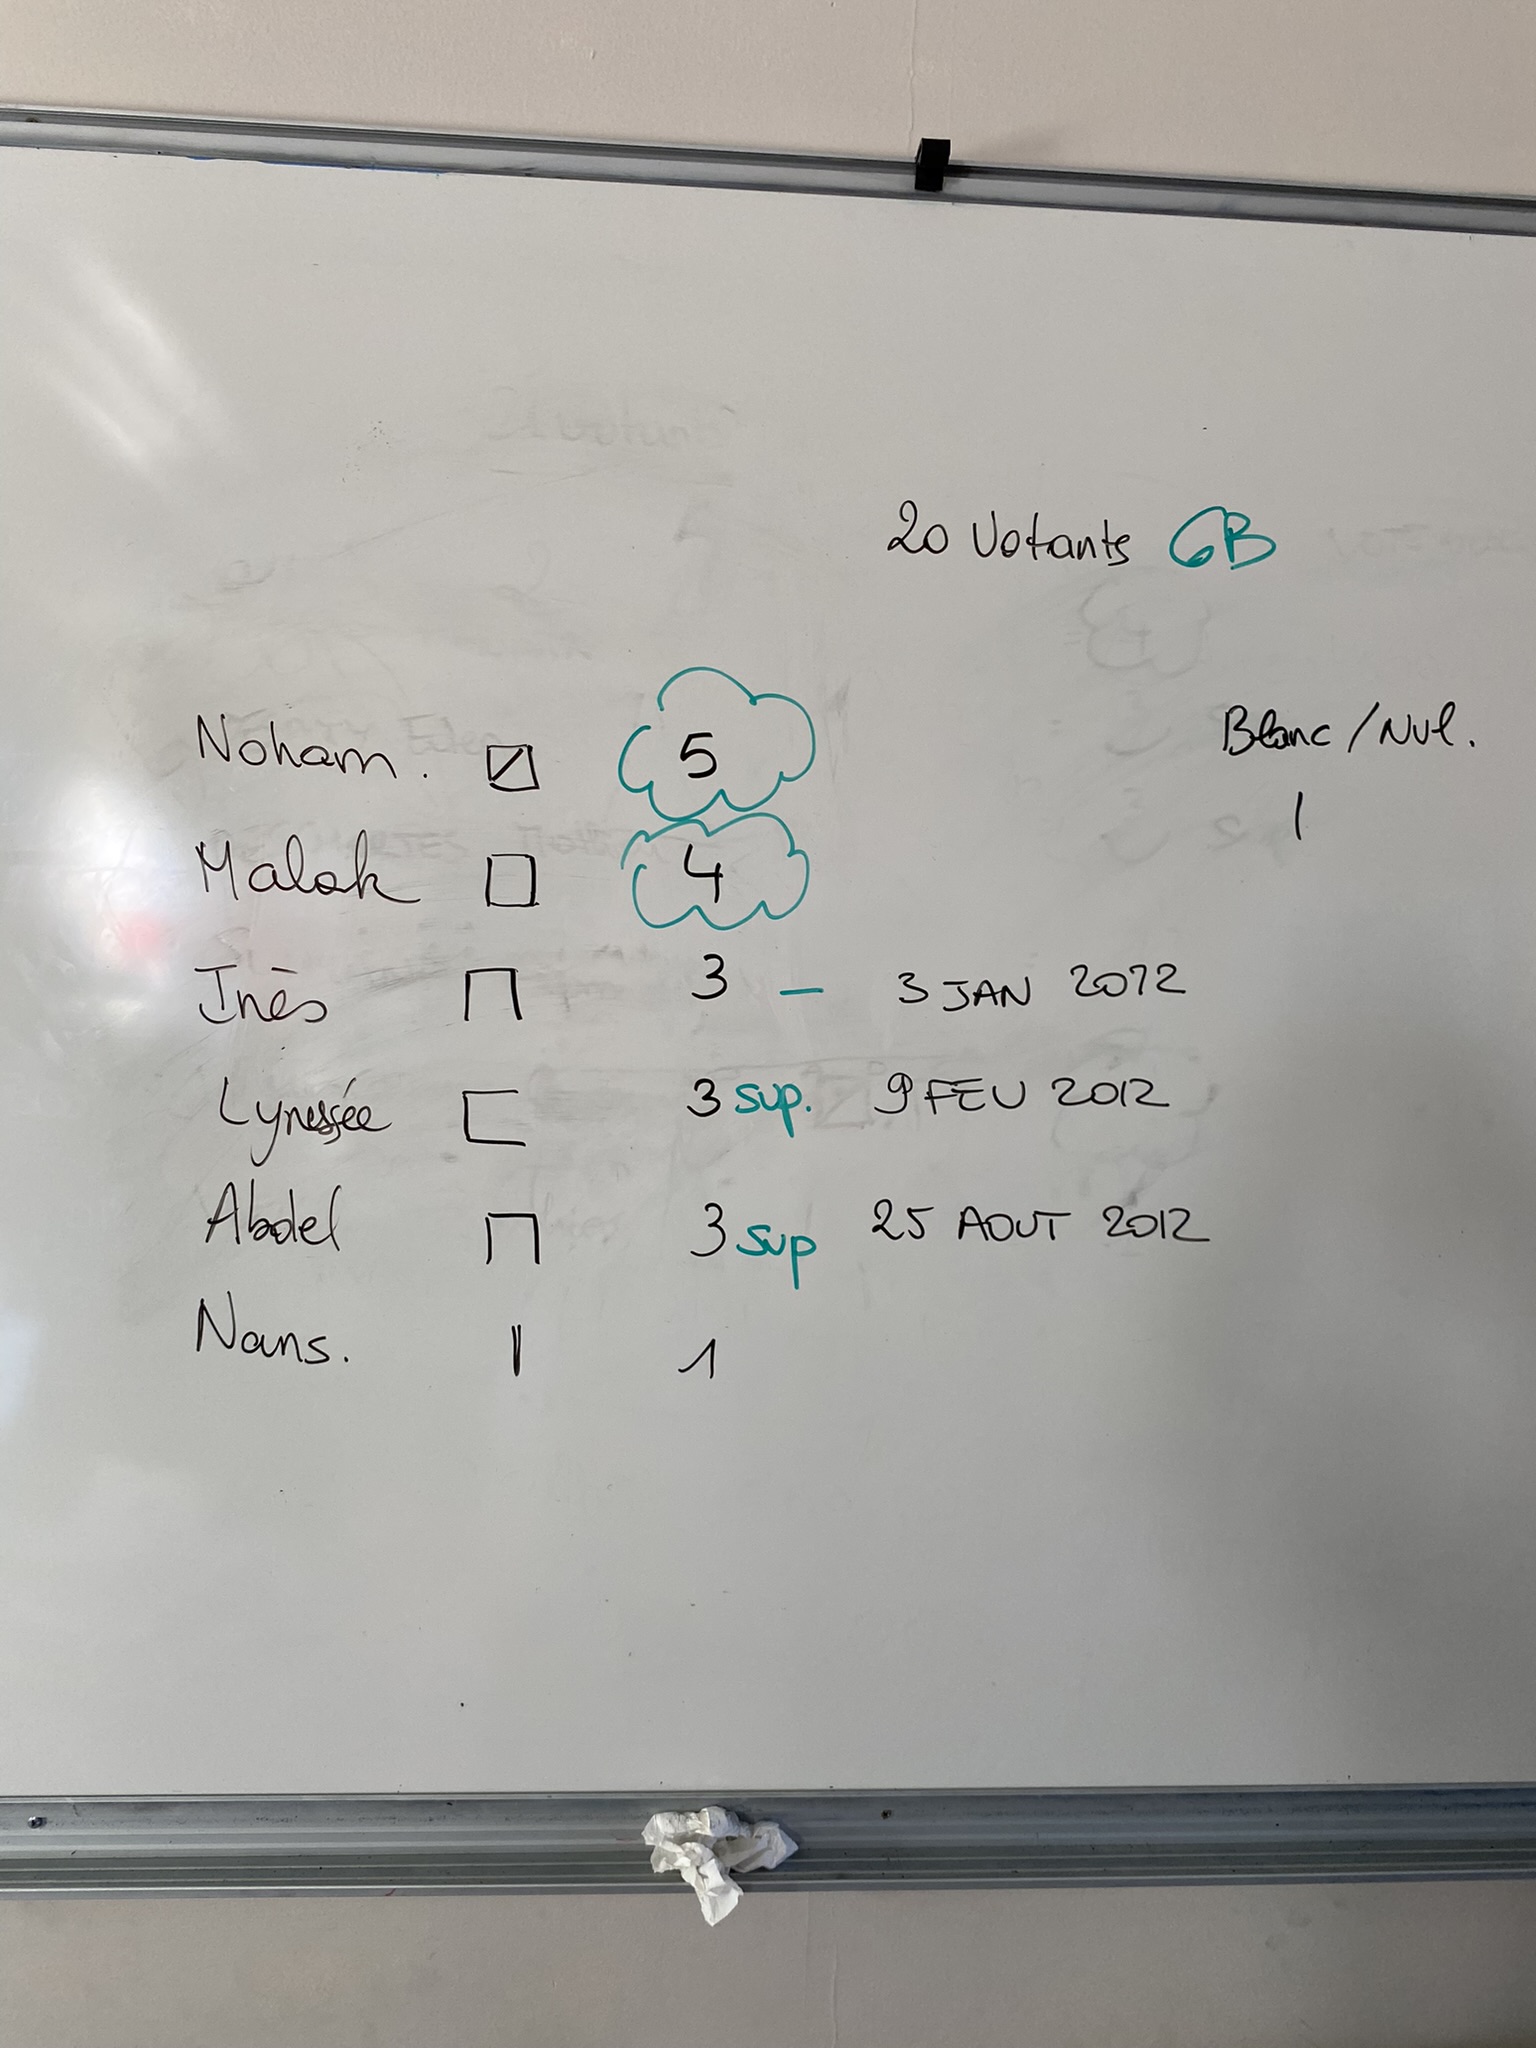 20 Votants 6B
Blanc / Nul.
|
Noham. 5
Malak 4
Inès 3 – 3 JAN 2012
Lynessée 3 sup. 9 FEV 2012
Abdel 3 sup 25 AOUT 2012
Nans. 1